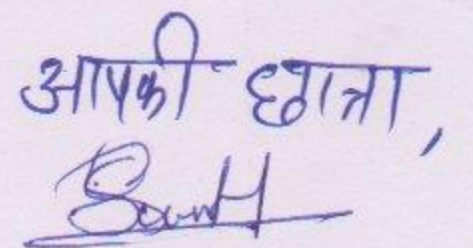 आपकी छात्रा,